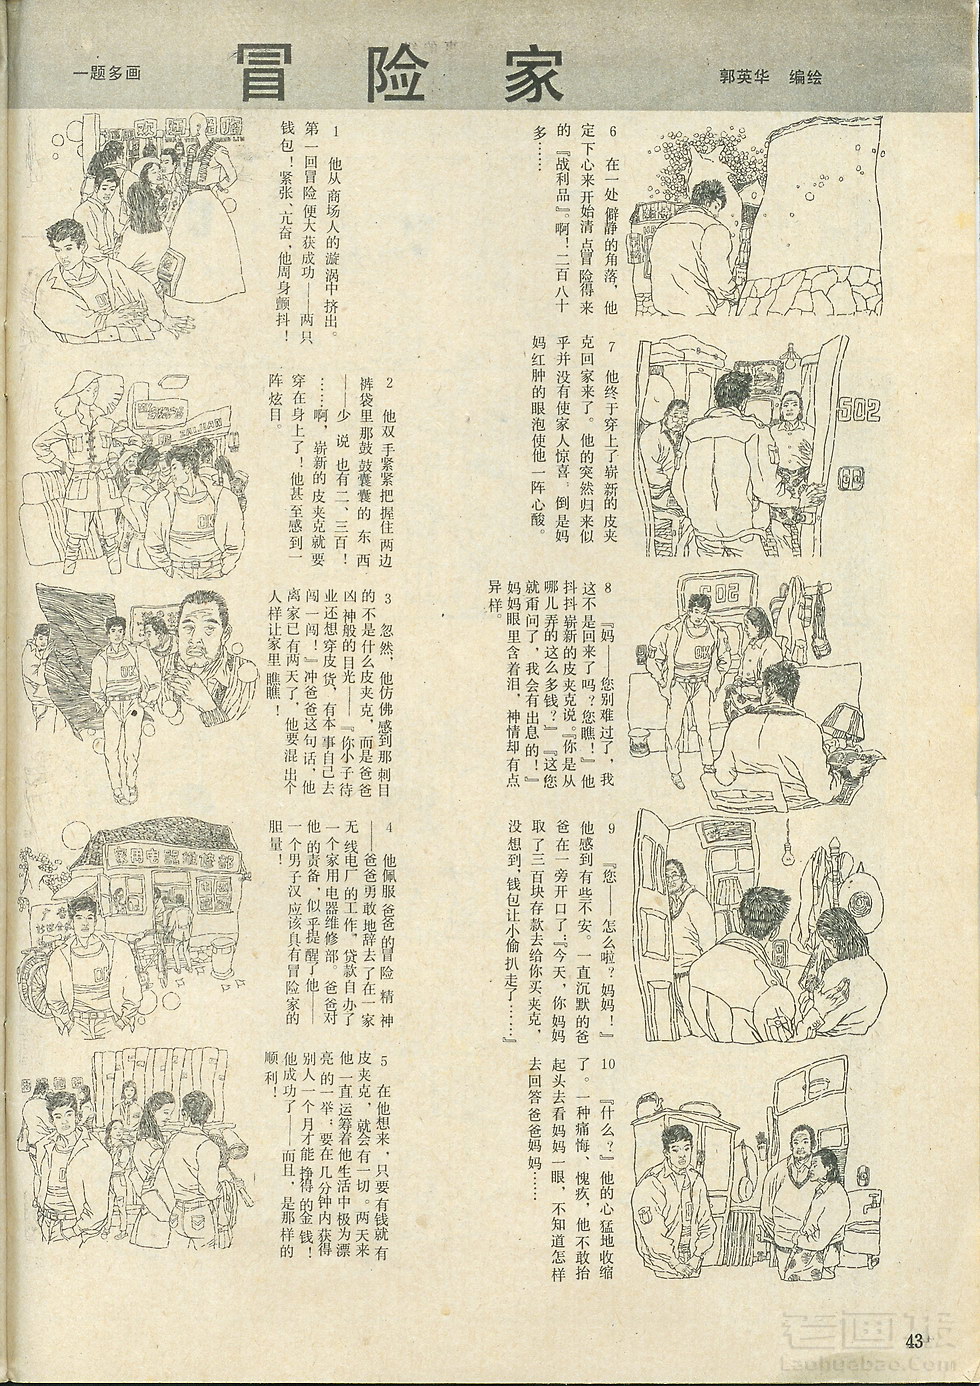 一题多画
冒险家
郭英华 编绘
1 他从商场人的漩涡中挤出。
第一回冒险便大获成功——两只
钱包！紧张、亢奋，他周身颤抖！
2 他双手紧紧把握住两边
裤袋里那鼓鼓囊囊的东西
——少说也有二、三百！
……啊，崭新的皮夹克就要
穿在身上了！他甚至感到一
阵炫目。
3 忽然，他仿佛感到那刺目
的不是什么皮夹克，而是爸爸
凶神般的目光——『你小子待
业还想穿皮货，有本事自己去
闯一闯！』冲爸爸这句话，他
离家已有两天了，他要混出个
人样让家里瞧瞧！
4 他佩服爸爸的冒险精神
——爸爸勇敢地辞去了在一家
无线电厂的工作，贷款自办了
一个家用电器维修部。爸爸对
他的责备，似乎提醒了他——
一个男子汉应该具有冒险家的
胆量！
5 在他想来，只要有钱就有
皮夹克，就会有一切。两天来
他一直运筹着他生活中极为漂
亮的一举：要在几分钟内获得
别人一个月才能挣得的金钱！
他成功了——而且，是那样的
顺利！
6 在一处僻静的角落，他
定下心来开始清点冒险得来
的『战利品』。啊！二百八十
多……
7 他终于穿上了崭新的皮夹
克回家来了。他的突然归来似
乎并没有使家人惊喜。倒是妈
妈红肿的眼泡使他一阵心酸。
502
8 『妈——您别难过了，我
这不是回来了吗？您瞧！』他
抖抖崭新的皮夹克说。『你是从
哪儿弄的这么多钱？』『这您
就甭问了，我会有出息的！』
妈妈眼里含着泪，神情却有点
异样。
502
9 『您——怎么啦？妈妈！』
他感到有些不安。一直沉默的爸
爸在一旁开口了：『今天，你妈妈
取了三百块存款去给你买夹克，
没想到，钱包让小偷扒走了……』
10 『什么？』他的心猛地收缩
了。一种痛悔、愧疚，他不敢抬
起头去看妈妈一眼，不知道怎样
去回答爸爸妈妈……
家用电器维修部
OK
43
老画报
Laohuabao.Com